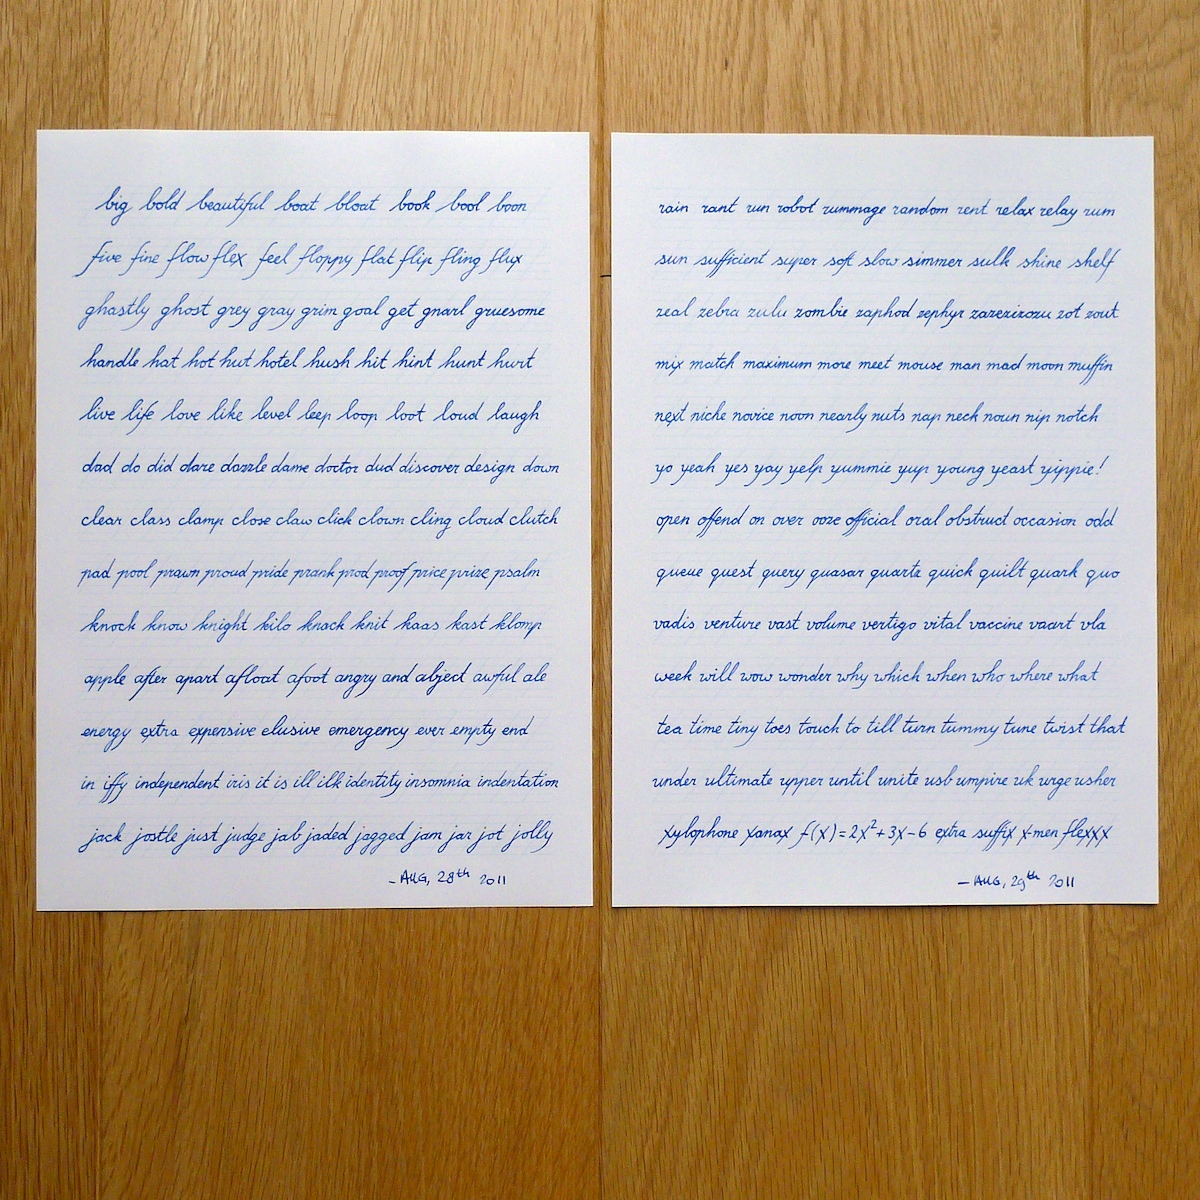 big bold beautiful boat bloat book bool boon
five fine flow flex feel floppy flat flip fling flux
ghastly ghost grey gray grim goal get gnarl gruesome
handle hat hot hut hotel hush hit hint hunt hurt
live life love like level leep loop loot loud laugh
dad do did dare dazzle dame doctor dud discover design down
clear class clamp close claw click clown cling cloud clutch
pad pool prawn proud pride prank prod proof price prize psalm
knock know knight kilo knack knit kaas kast klomp
apple after apart afloat afoot angry and abject awful ale
energy extra expensive elusive emergency ever empty end
in iffy independent iris it is ill ilk identity insomnia indentation
jack jostle just judge jab jaded jagged jam jar jot jolly
- AUG, 28th 2011
rain rant run robot rummage random rent relax relay rum
sun sufficient super soft slow simmer sulk shine shelf
zeal zebra zulu zombie zaphod zephyr zazezizozu zot zout
mix match maximum more meet mouse man mad moon muffin
next niche novice noon nearly nuts nap neck noun nip notch
yo yeah yes yay yelp yummie yup young yeast yippie!
open offend on over ooze official oral obstruct occasion odd
queue quest query quasar quartz quick quilt quark quo
vadis venture vast volume vertigo vital vaccine vaart vla
week will wow wonder why which when who where what
tea time tiny toes touch to till turn tummy tune twist that
under ultimate upper until unite usb umpire uk urge usher
xylophone xanax f(x)=2x²+3x-6 extra suffix x-men flexxx
- AUG, 29th 2011